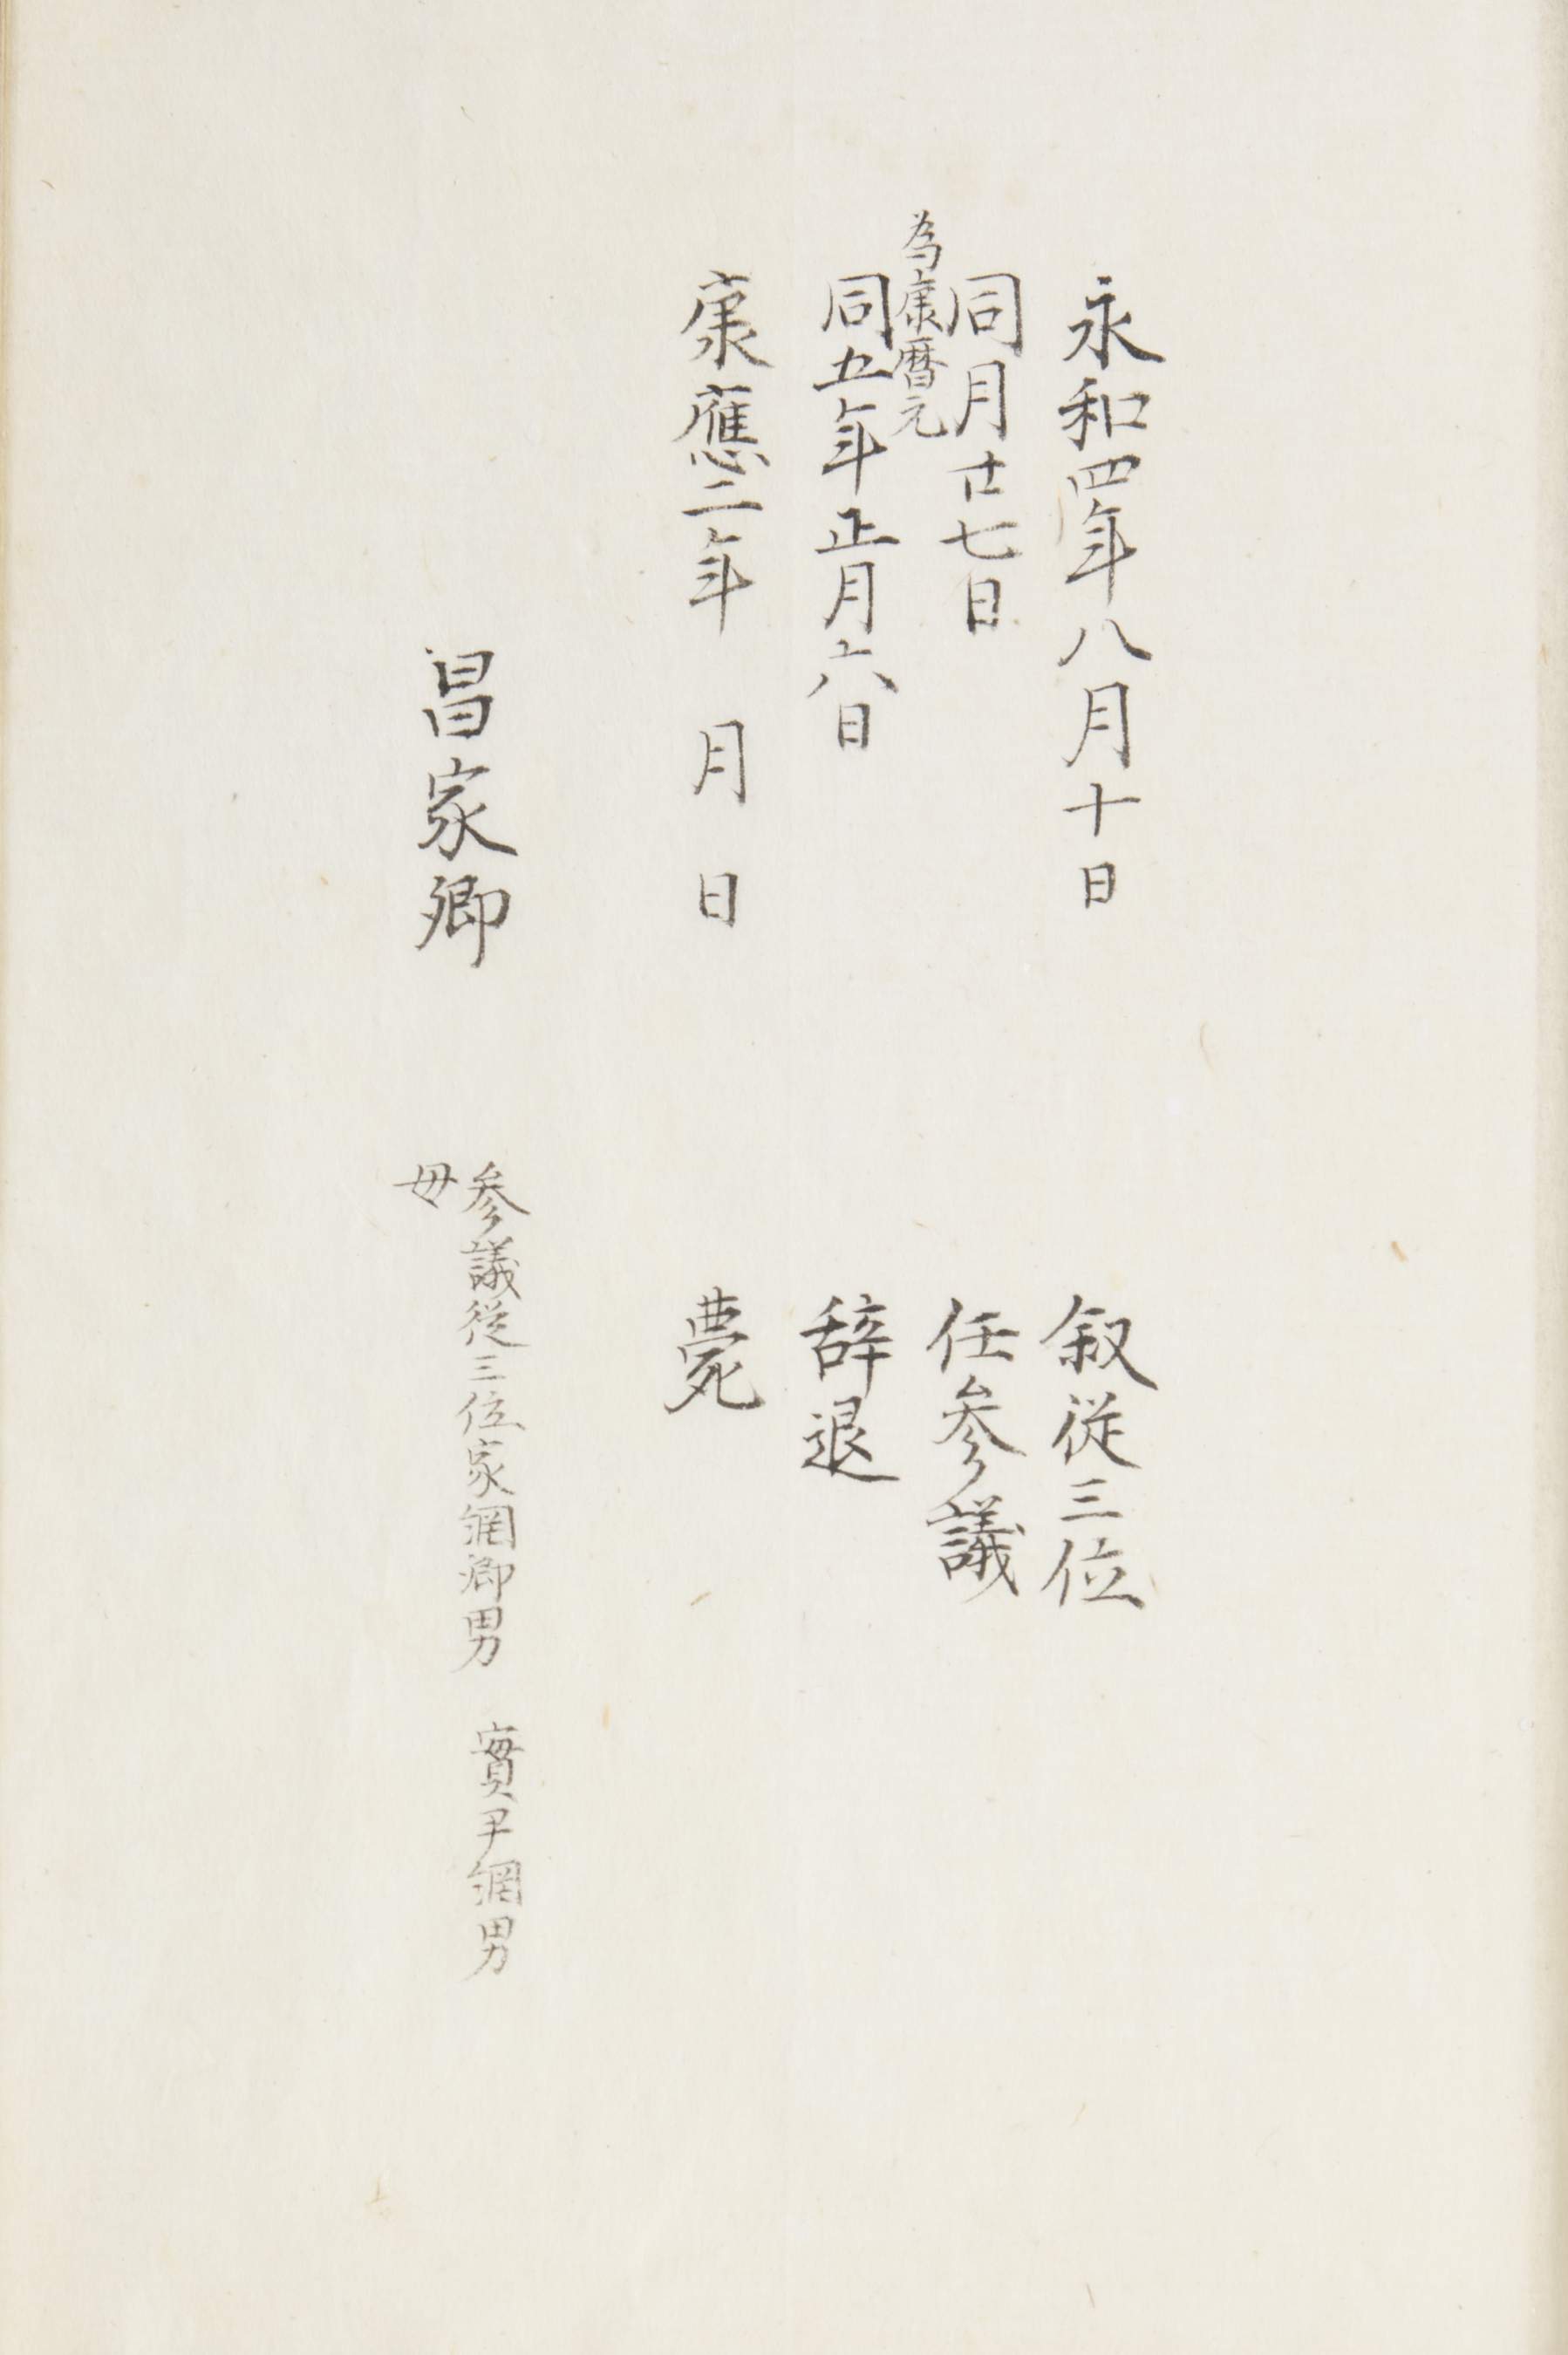 永和四年八月十日 叙従三位
同月廿七日 任参議
為康暦元
同五年正月六日 辞退
康應二年 月 日 薨
昌家卿
参議従三位家綱卿男 實尹綱男
母